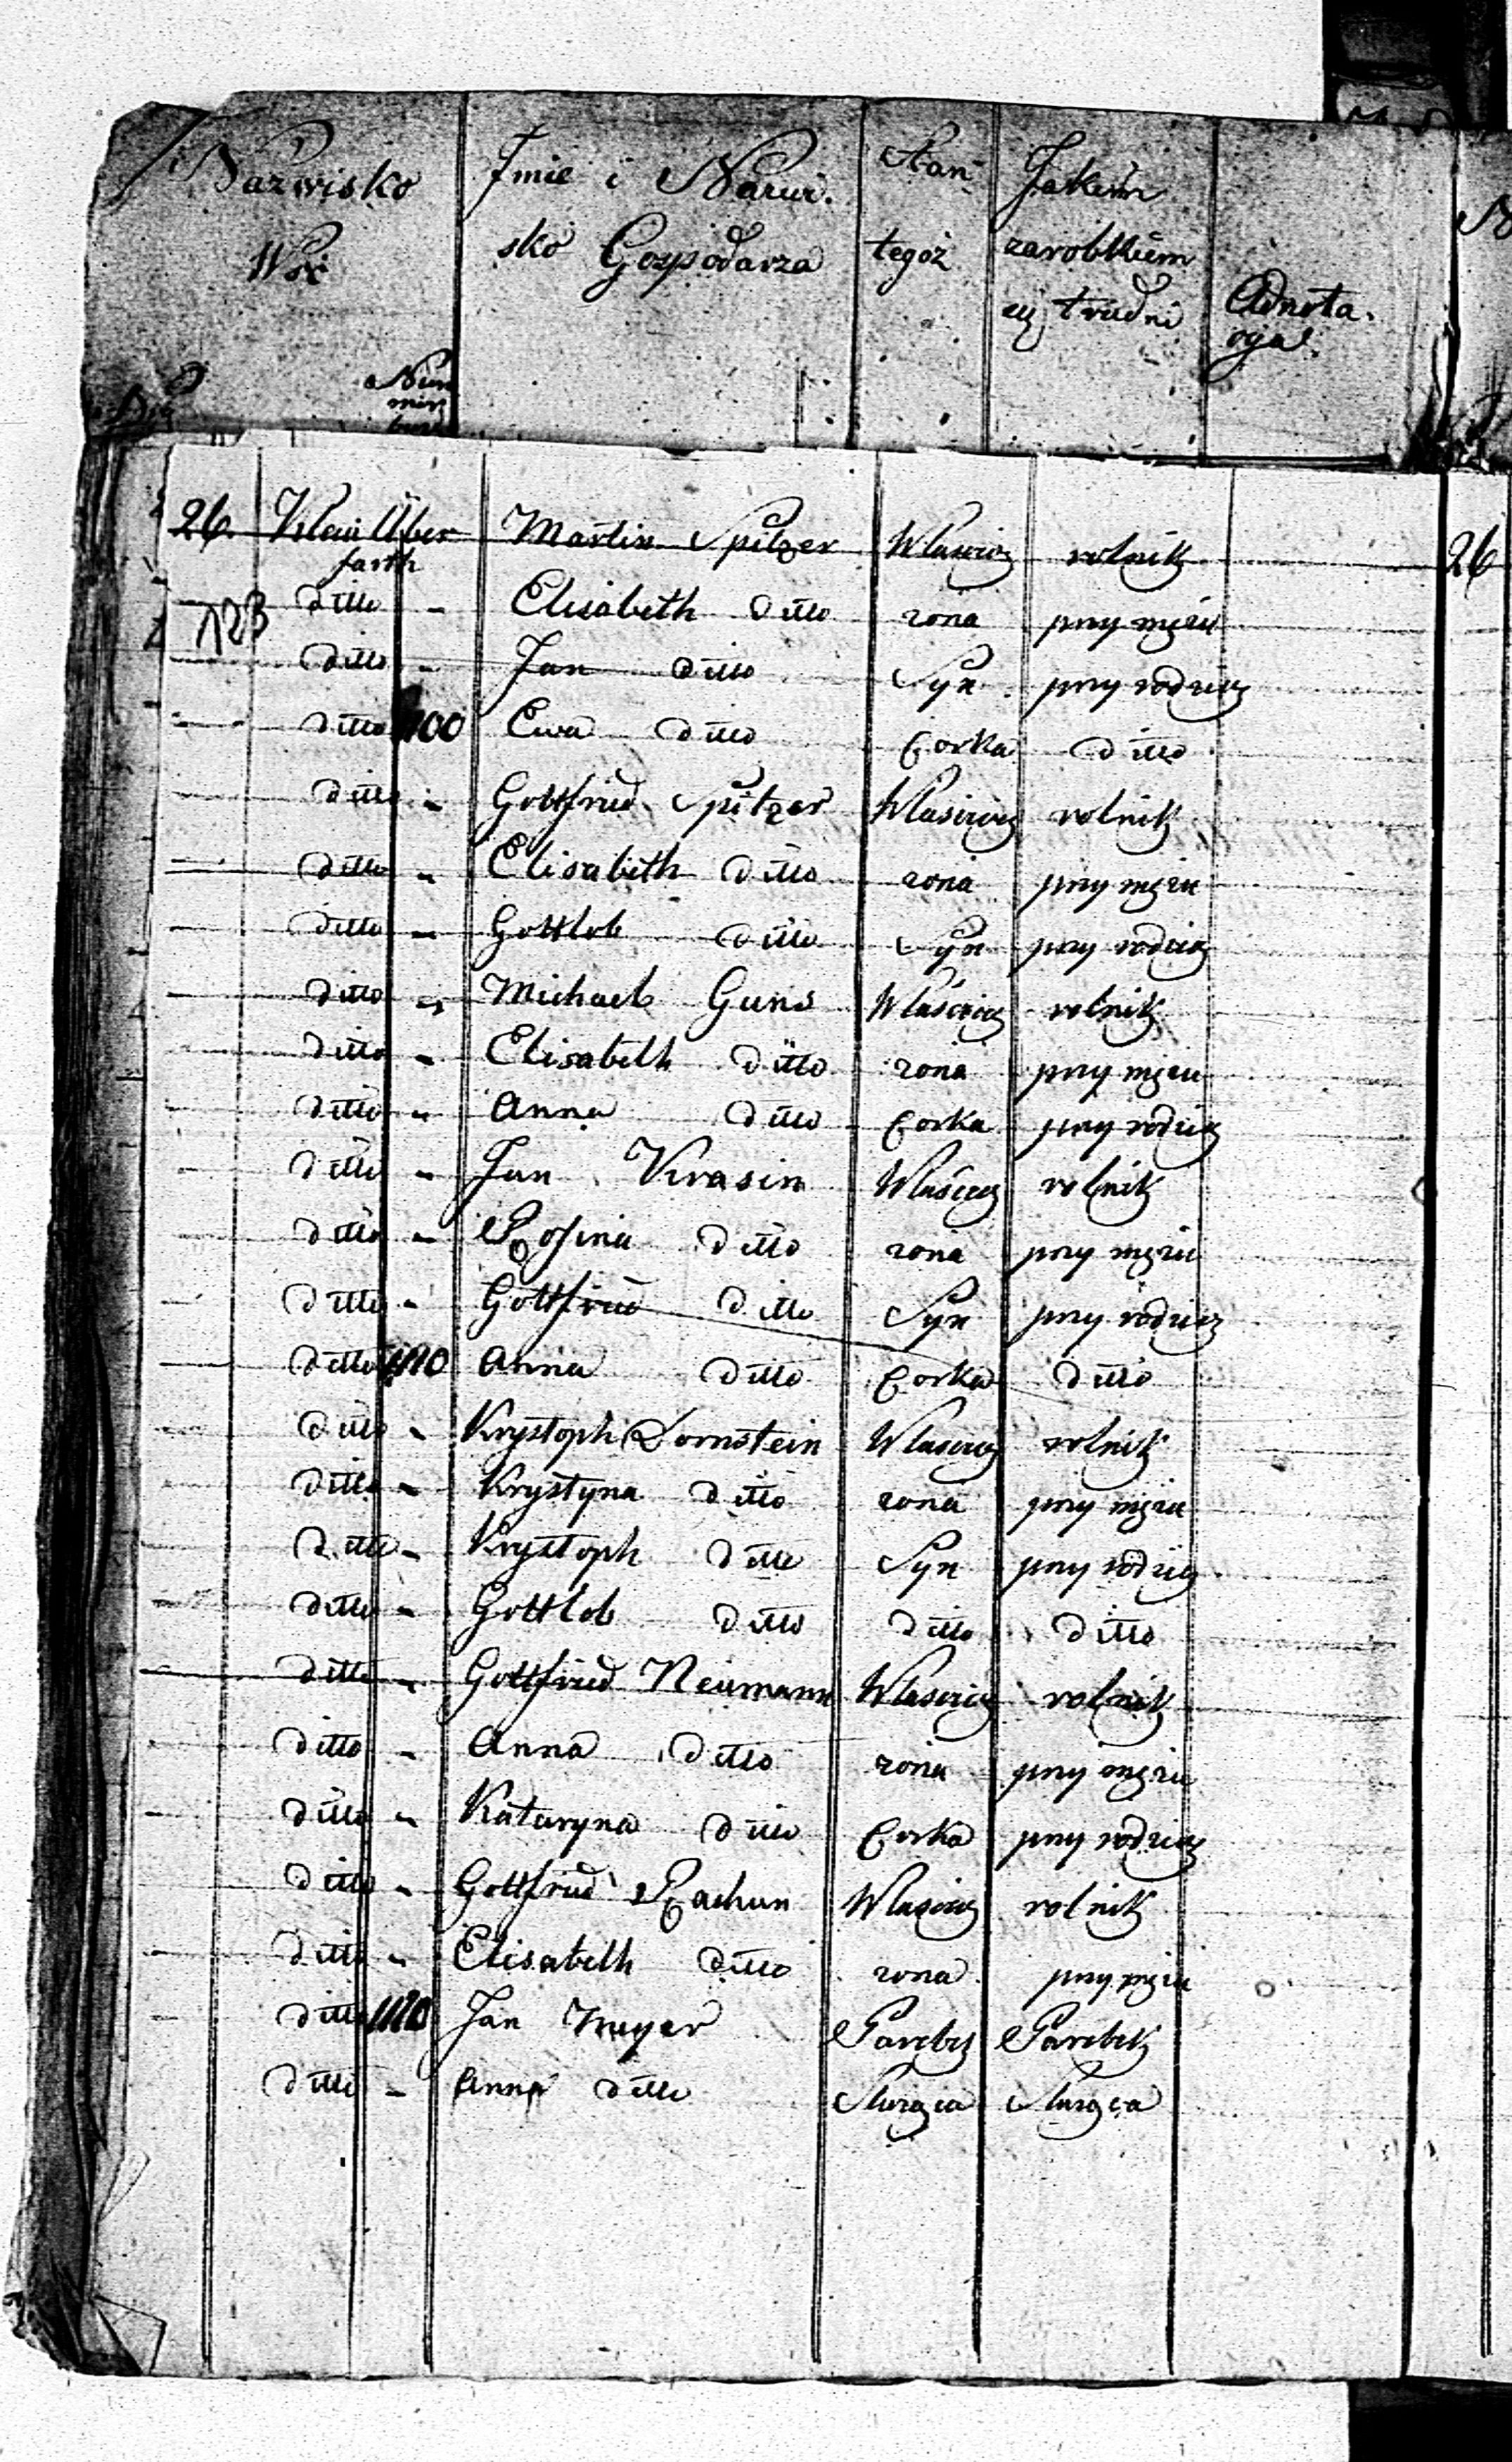 Nazwisko Wsi
Imie i Nazwi-
sko Gospodarza
Stan
tegoż
Jakiem
zarobkiem
się trudni
Adnota-
cyja
Num
mer
26. Klein Über Martin Spitzer Właścicz rolnik 26
farth
ditto - Elisabeth ditto żona przy mężu
123
ditto - Jan ditto Syn przy rodzicz
ditto 1100 Ewa ditto Corka ditto
ditto - Gottfried Spitzer Właścicz rolnik
ditto - Elisabeth ditto żona przy mężu
ditto - Gottlob ditto Syn przy rodzicz
ditto - Michael Guns Właścicz rolnik
ditto - Elisabeth ditto żona przy mężu
ditto - Anna ditto Corka przy rodzicz
ditto - Jan Krasin Właścicz rolnik
ditto - Rosina ditto żona przy mężu
ditto - Gottfried ditto Syn przy rodzicz
ditto 1110 Anna ditto Corka ditto
ditto - Krystoph Dornstein Właścicz rolnik
ditto - Krystyna ditto żona przy mężu
ditto - Krystoph ditto Syn przy rodzicz
ditto - Gottlob ditto ditto ditto
ditto - Gottfried Neumann Właścicz rolnik
ditto - Anna ditto żona przy mężu
ditto - Kataryna ditto Corka przy rodzicz
ditto - Gottfried Rachun Właścicz rolnik
ditto - Elisabeth ditto żona przy mężu
ditto 1120 Jan Meyer Parobek Parobek
ditto - Anna ditto Służąca Służąca